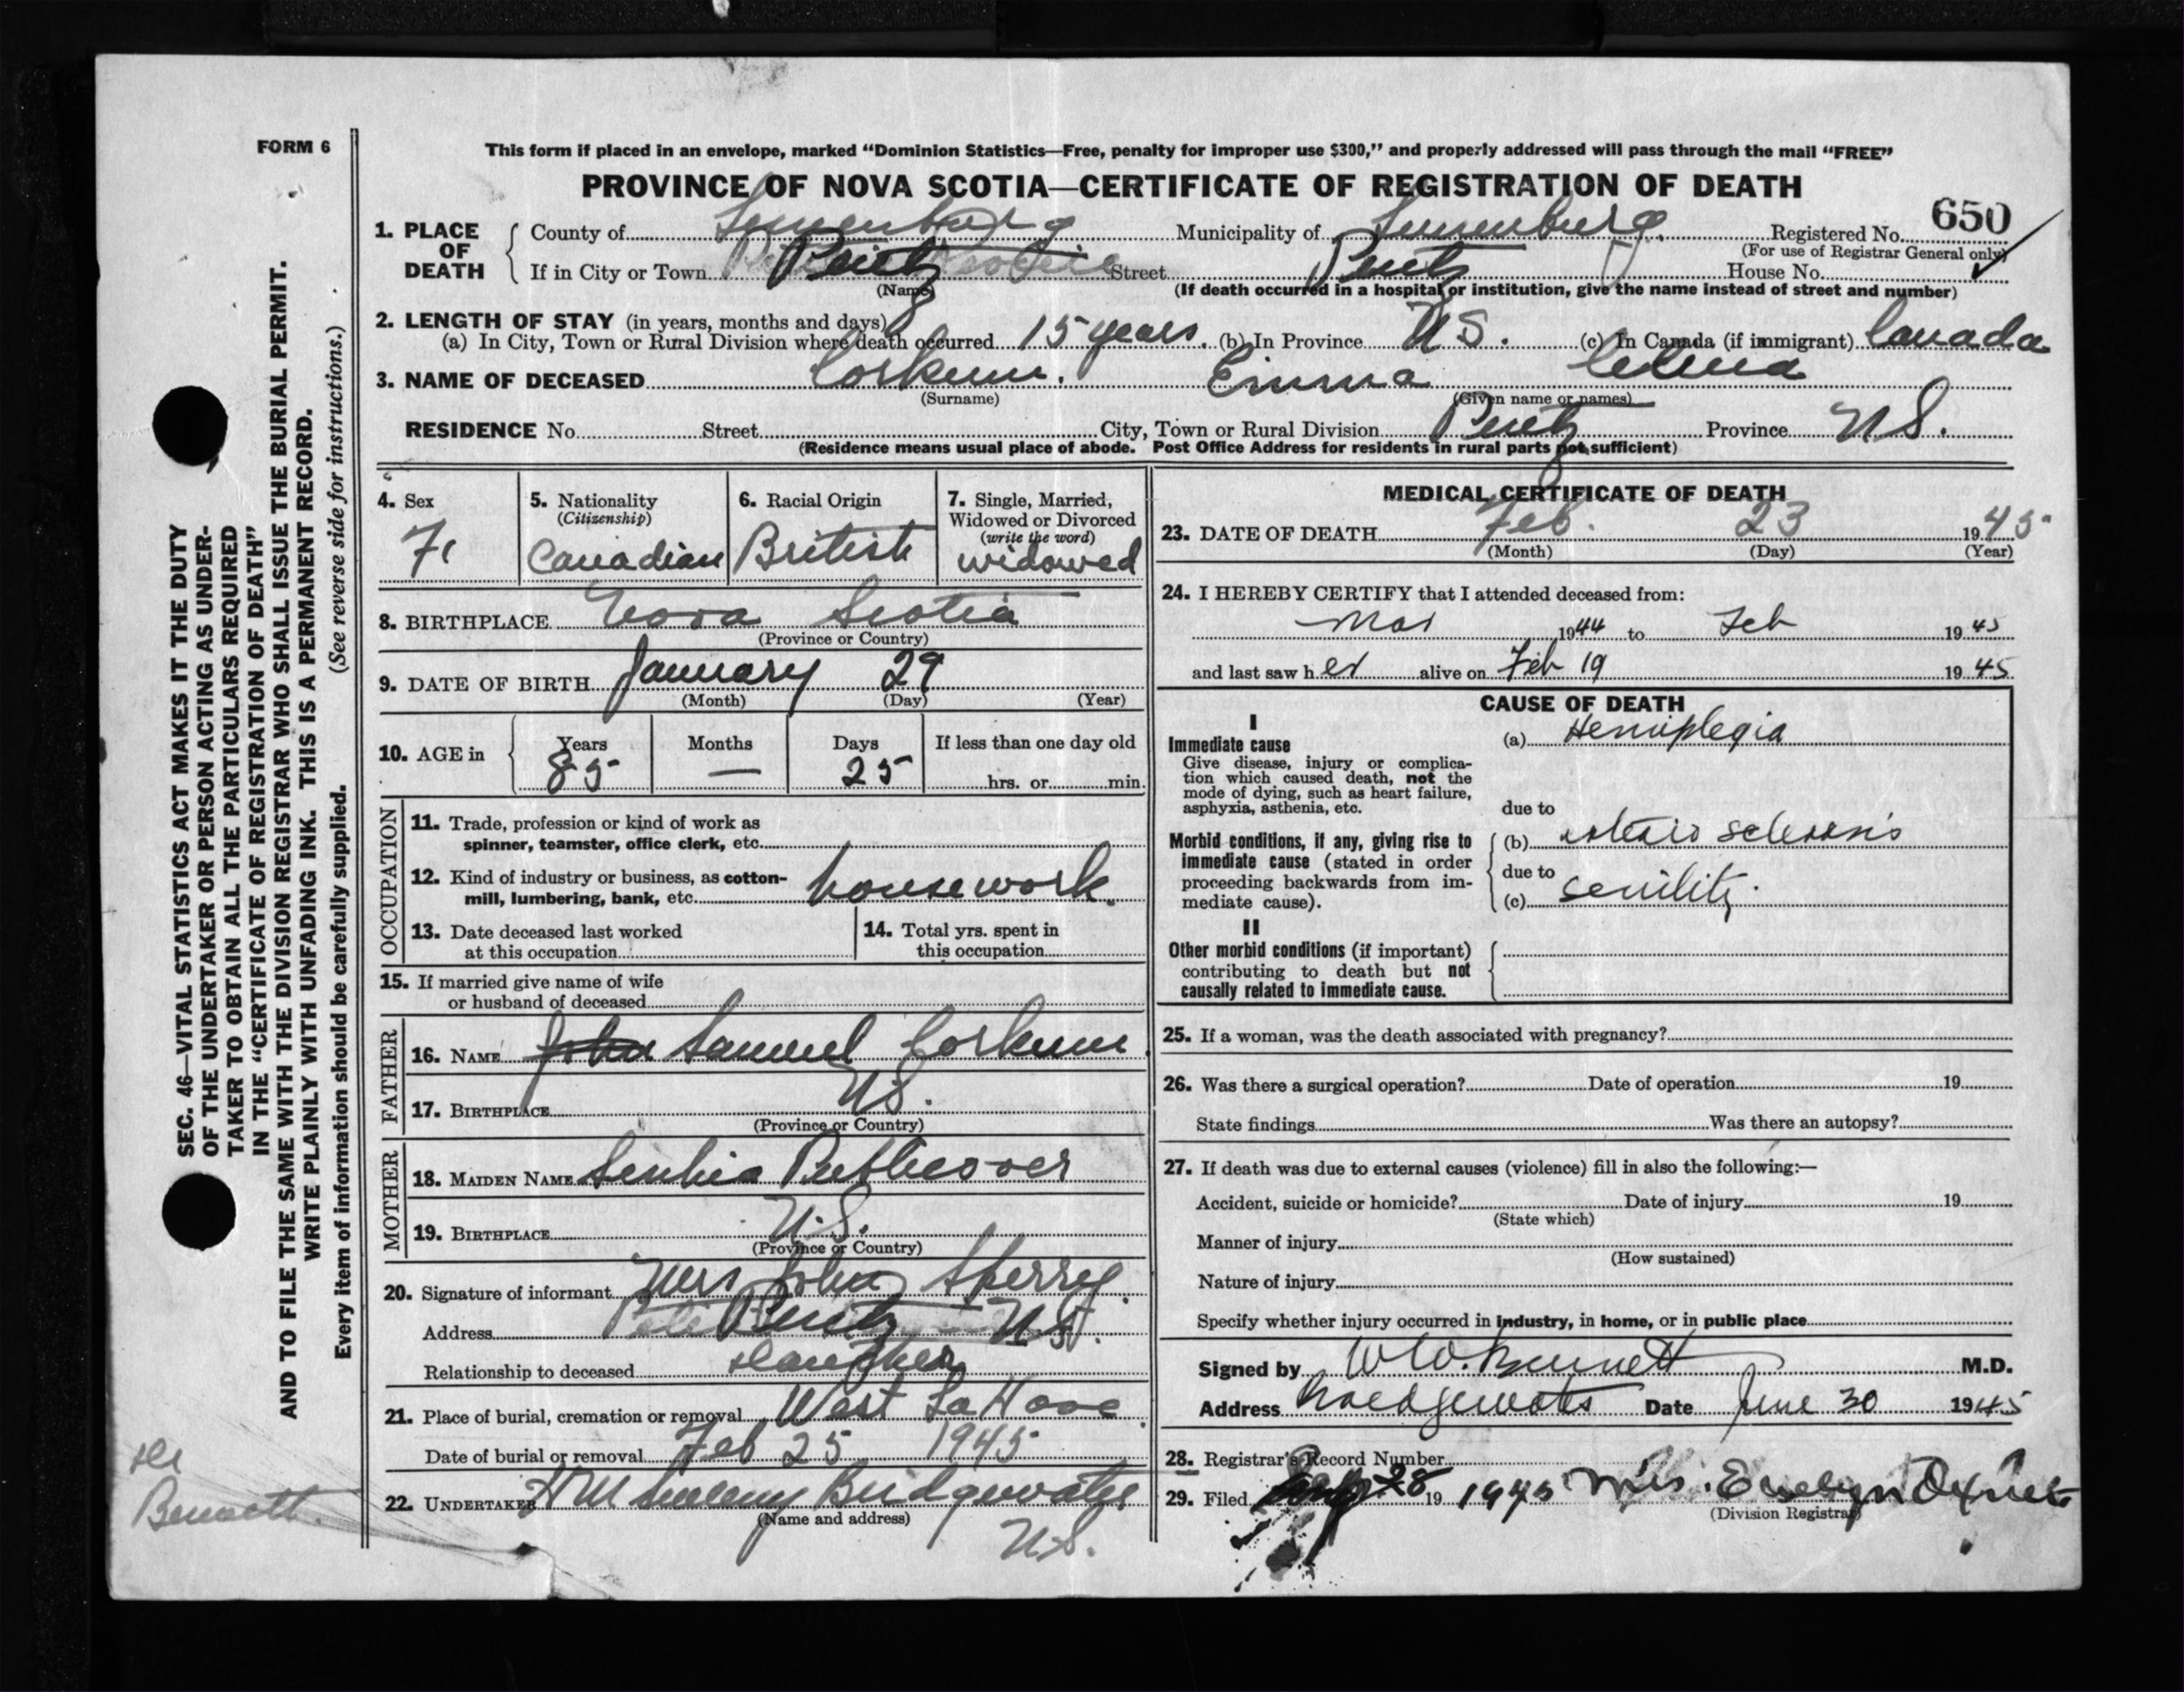 FORM 6
This form if placed in an envelope, marked “Dominion Statistics—Free, penalty for improper use $300,” and properly addressed will pass through the mail “FREE”
PROVINCE OF NOVA SCOTIA—CERTIFICATE OF REGISTRATION OF DEATH
650
1. PLACE OF DEATH
County of Lunenburg Municipality of Lunenburg Registered No.
(For use of Registrar General only)
If in City or Town Pentz Street Pentz House No.
(Name) (If death occurred in a hospital or institution, give the name instead of street and number)
2. LENGTH OF STAY (in years, months and days)
(a) In City, Town or Rural Division where death occurred 15 years. (b) In Province N S. (c) In Canada (if immigrant) Canada
3. NAME OF DECEASED Corkum. Emma
(Surname) (Given name or names)
RESIDENCE No. Street City, Town or Rural Division Pentz Province N S.
(Residence means usual place of abode. Post Office Address for residents in rural parts not sufficient)
4. Sex
5. Nationality (Citizenship)
Canadian
6. Racial Origin
British
7. Single, Married, Widowed or Divorced (write the word)
widowed
8. BIRTHPLACE Nova Scotia
(Province or Country)
9. DATE OF BIRTH January 29
(Month) (Day) (Year)
10. AGE in Years Months Days If less than one day old
85 — 25 hrs. or min.
OCCUPATION
11. Trade, profession or kind of work as
spinner, teamster, office clerk, etc.
12. Kind of industry or business, as cotton-
mill, lumbering, bank, etc. housework.
13. Date deceased last worked
at this occupation
14. Total yrs. spent in
this occupation
15. If married give name of wife
or husband of deceased
FATHER
16. NAME John Samuel Corkum
17. BIRTHPLACE N S.
(Province or Country)
MOTHER
18. MAIDEN NAME
19. BIRTHPLACE N.S.
(Province or Country)
20. Signature of informant Mrs John Sperry.
Address Pentz N S.
Relationship to deceased daughter
21. Place of burial, cremation or removal West La Have
Date of burial or removal Feb 25 1945
22. UNDERTAKER Bridgewater
(Name and address)
N S.
MEDICAL CERTIFICATE OF DEATH
23. DATE OF DEATH Feb. 23 1945
(Month) (Day) (Year)
24. I HEREBY CERTIFY that I attended deceased from:
Mar 1944 to Feb 1945
and last saw her alive on Feb 19 1945
CAUSE OF DEATH
I
Immediate cause
Give disease, injury or complica-
tion which caused death, not the
mode of dying, such as heart failure,
asphyxia, asthenia, etc.
(a) Hemiplegia
due to
Morbid conditions, if any, giving rise to
immediate cause (stated in order
proceeding backwards from im-
mediate cause).
(b) arterio sclerosis
due to
(c) senility.
II
Other morbid conditions (if important)
contributing to death but not
causally related to immediate cause.
25. If a woman, was the death associated with pregnancy?
26. Was there a surgical operation? Date of operation 19
State findings Was there an autopsy?
27. If death was due to external causes (violence) fill in also the following:—
Accident, suicide or homicide? Date of injury 19
(State which)
Manner of injury
(How sustained)
Nature of injury
Specify whether injury occurred in industry, in home, or in public place
Signed by W W. Bennett M.D.
Address Bridgewater Date June 30 1945
28. Registrar's Record Number
29. Filed 28 19 1945 Mrs. Evelyn
(Division Registrar)
SEC. 46—VITAL STATISTICS ACT MAKES IT THE DUTY
OF THE UNDERTAKER OR PERSON ACTING AS UNDER-
TAKER TO OBTAIN ALL THE PARTICULARS REQUIRED
IN THE “CERTIFICATE OF REGISTRATION OF DEATH”
AND TO FILE THE SAME WITH THE DIVISION REGISTRAR WHO SHALL ISSUE THE BURIAL PERMIT.
WRITE PLAINLY WITH UNFADING INK. THIS IS A PERMANENT RECORD.
(See reverse side for instructions.)
Every item of information should be carefully supplied.
Bennett.